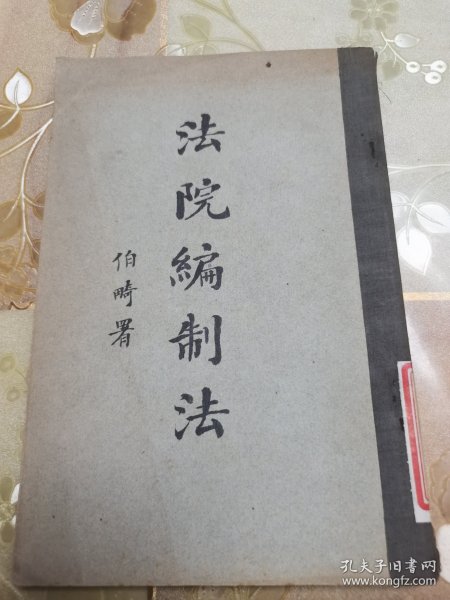 法院編制法
伯畸署
孔夫子旧书网
www.kongfz.com